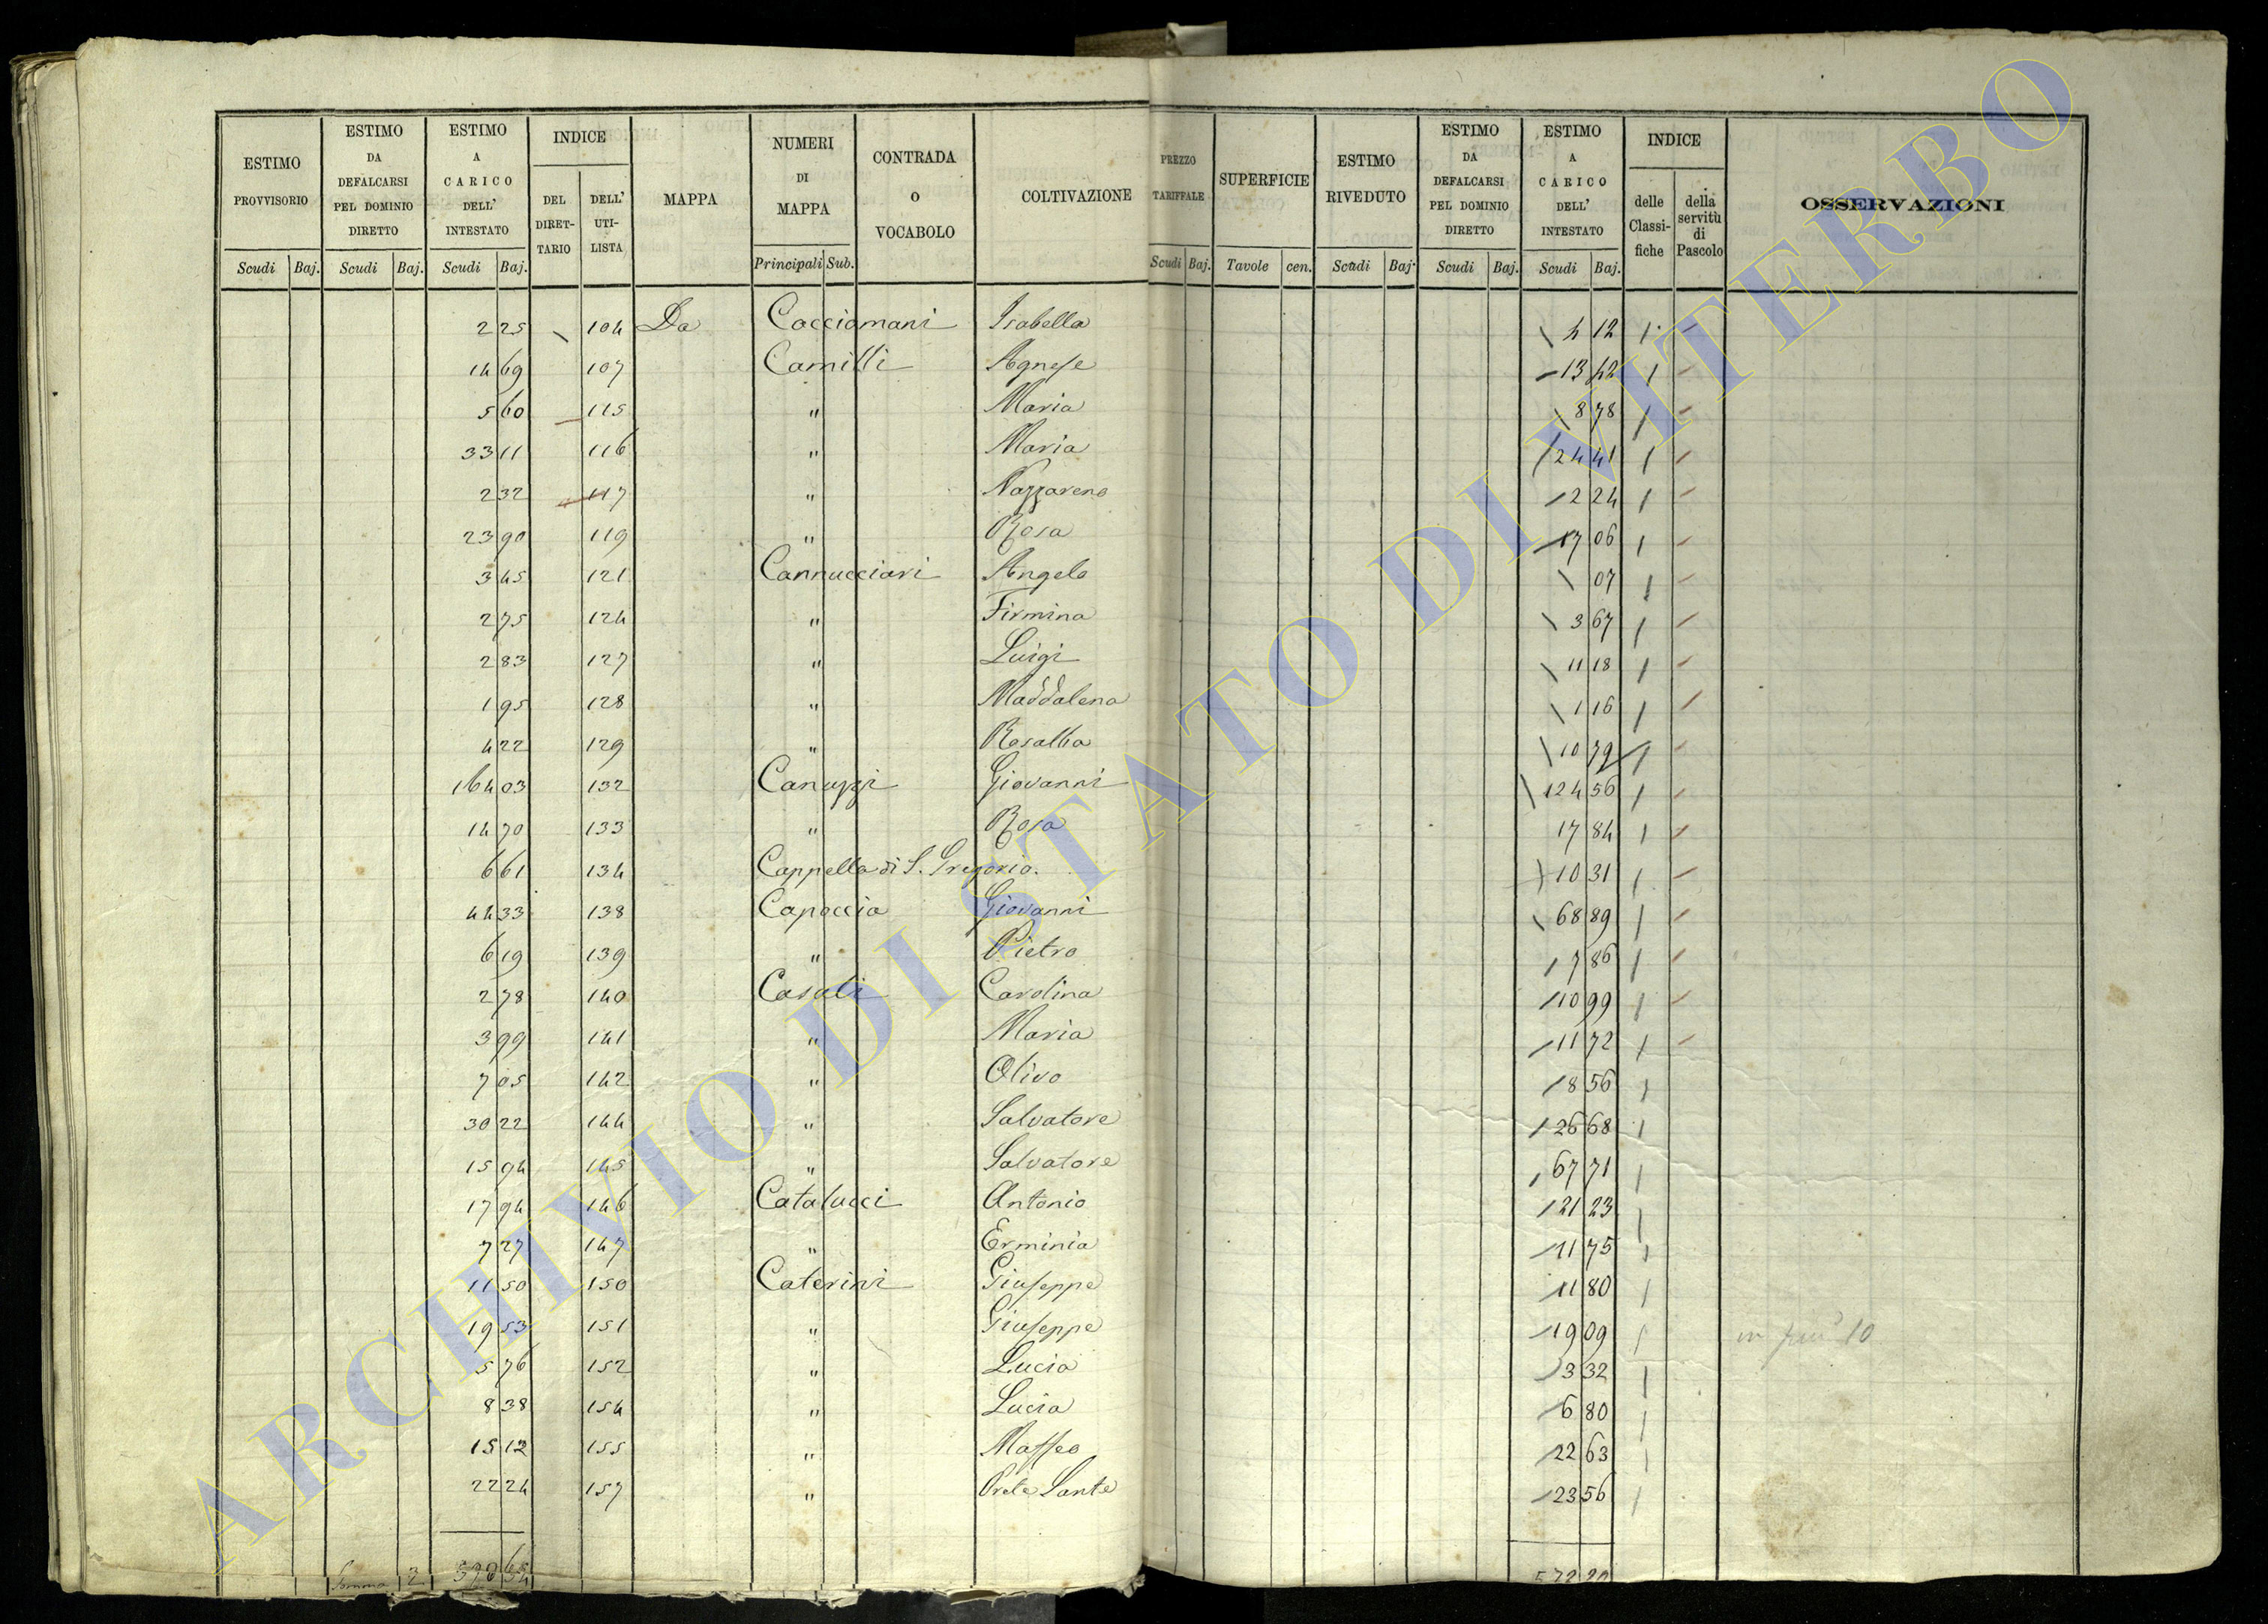 ESTIMO PROVVISORIO | ESTIMO DA DEFALCARSI PEL DOMINIO DIRETTO | ESTIMO A CARICO DELL' INTESTATO | INDICE DEL DIRET-TARIO | DELL' UTI-LISTA | MAPPA | NUMERI DI MAPPA | CONTRADA o VOCABOLO | COLTIVAZIONE | PREZZO TARIFFALE | SUPERFICIE | ESTIMO RIVEDUTO | ESTIMO DA DEFALCARSI PEL DOMINIO DIRETTO | ESTIMO A CARICO DELL' INTESTATO | INDICE delle Classi-fiche | della servitù di Pascolo | OSSERVAZIONI
Scudi Baj. | Scudi Baj. | Scudi Baj. | Principali Sub. | Scudi Baj. | Tavole cen. | Scudi Baj. | Scudi Baj. | Scudi Baj.
2 25 104 Da Cacciamani Isabella 4 12
14 69 107 Camilli Agnese 13 42
5 60 115 " Maria 8 78
33 11 116 " Maria 24 41
2 32 117 " Nazzareno 2 24
23 90 119 " Rosa 17 06
3 45 121 Cannucciari Angelo 07
2 75 124 " Firmina 3 67
2 83 127 " Luigi 11 18
1 95 128 " Maddalena 1 16
4 22 129 " Rosalba 10 79
164 03 132 Canuzzi Giovanni 124 56
14 70 133 " Rosa 17 84
6 61 134 Cappella di S. Gregorio. 10 31
44 33 138 Capoccia Giovanni 68 89
6 19 139 " Pietro 7 86
2 78 140 Casali Carolina 10 99
3 99 141 " Maria 11 72
7 05 142 " Olivo 8 56
30 22 144 " Salvatore 26 68
15 94 145 " Salvatore 67 71
17 94 146 Catalucci Antonio 21 23
7 27 147 " Erminia 11 75
11 50 150 Caterini Giuseppe 11 80
19 53 151 " Giuseppe 19 09 10
5 76 152 " Lucia 3 32
8 38 154 " Lucia 6 80
15 12 155 " Maffeo 22 63
22 24 157 " Prete Sante 23 56
Somma 2
ARCHIVIO DI STATO DI VITERBO